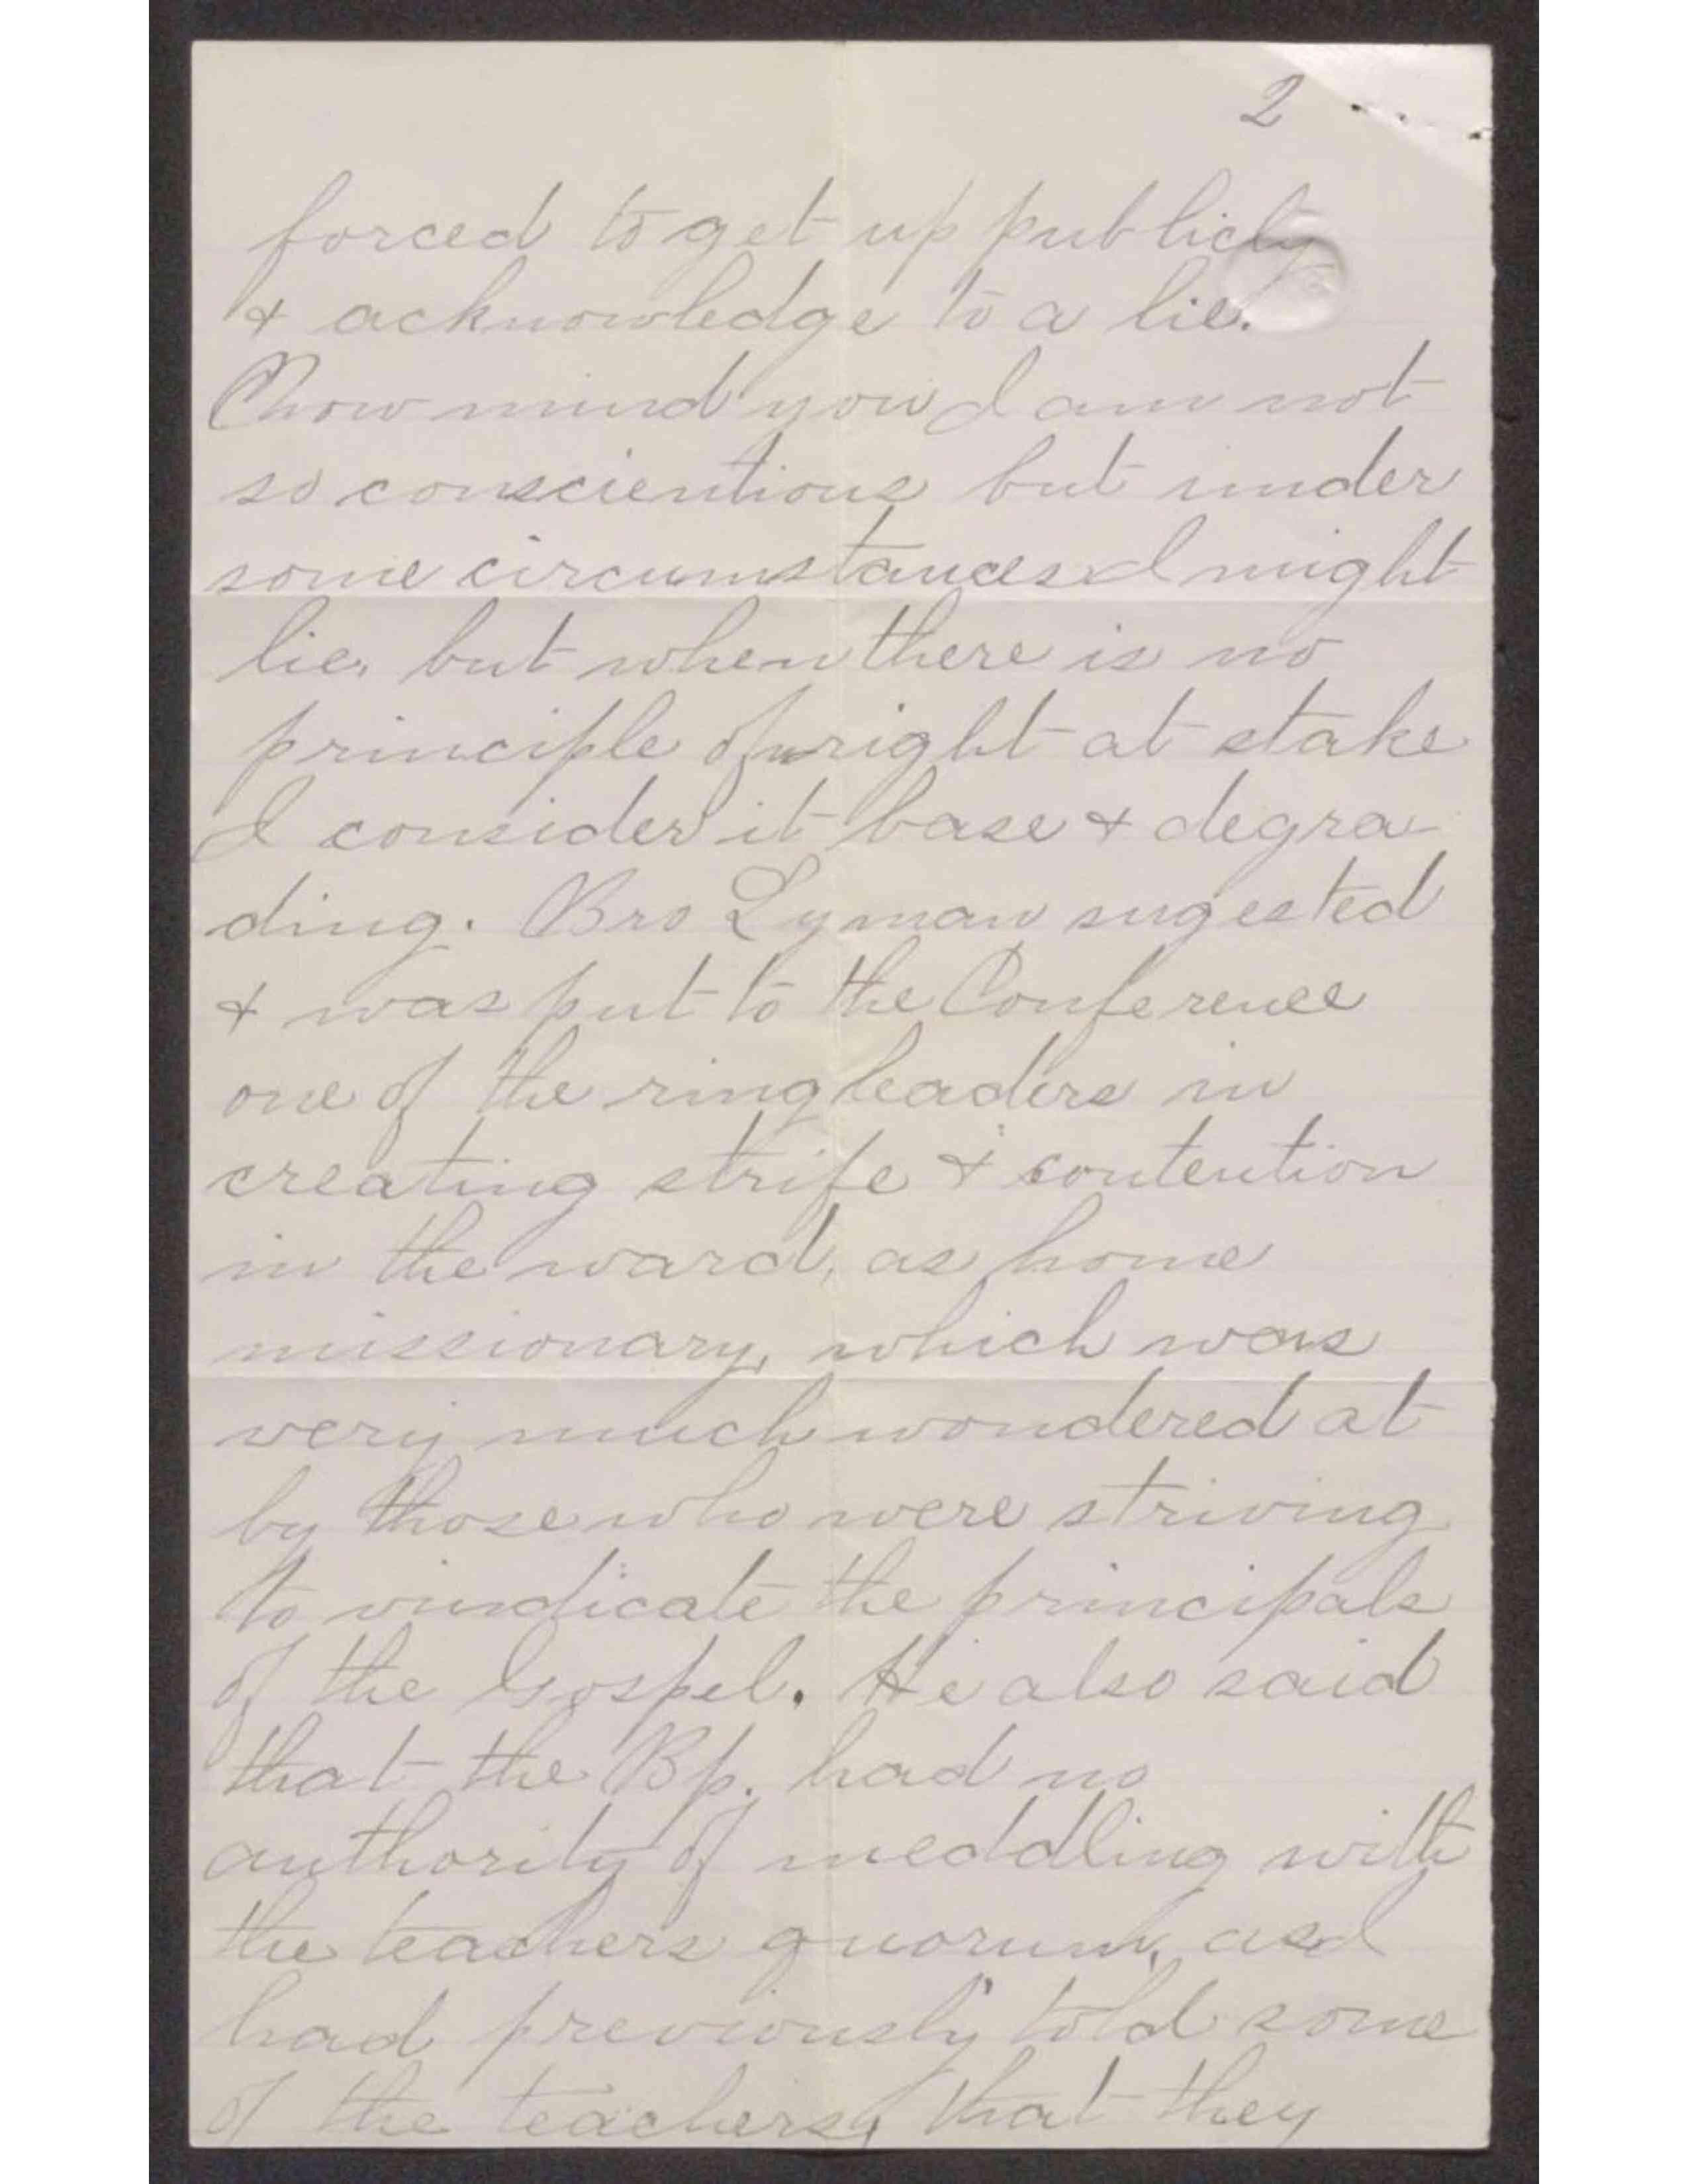 2
forced to get up publicly
& acknowledge to a lie.
Now mind you I am not
so conscientious but under
some circumstances I might
lie, but when there is no
principle of right at stake
I consider it base & degra-
ding. Bro Lyman sugested
& was put to the Conference
one of the ringleaders in
creating strife & contention
in the ward, as home
missionary, which was
very much wondered at
by those who were striving
to vindicate the principals
of the Gospel. He also said
that the Bp. had no
authority of meddling with
the teachers quorum, as I
had previously told some
of the teachers, that they